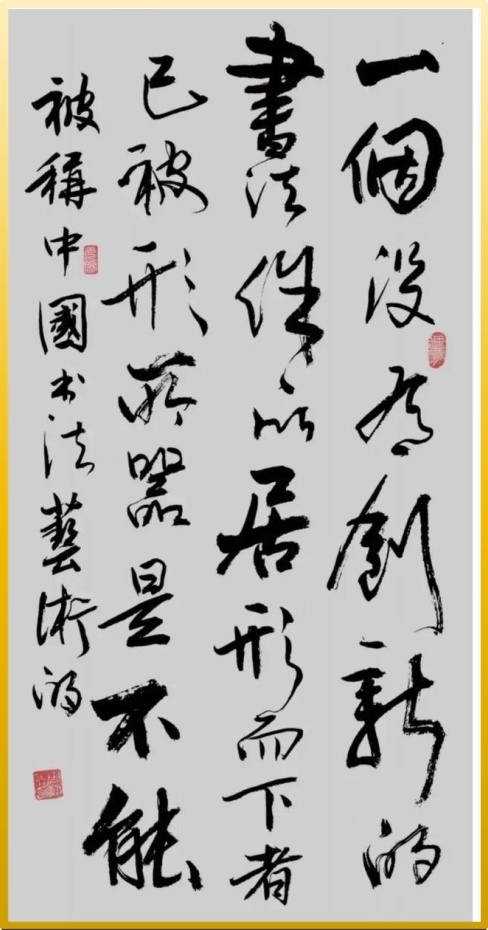 一個沒有創新的
書法以居形而下者
已被形所器是不能
被稱中國书法藝術的